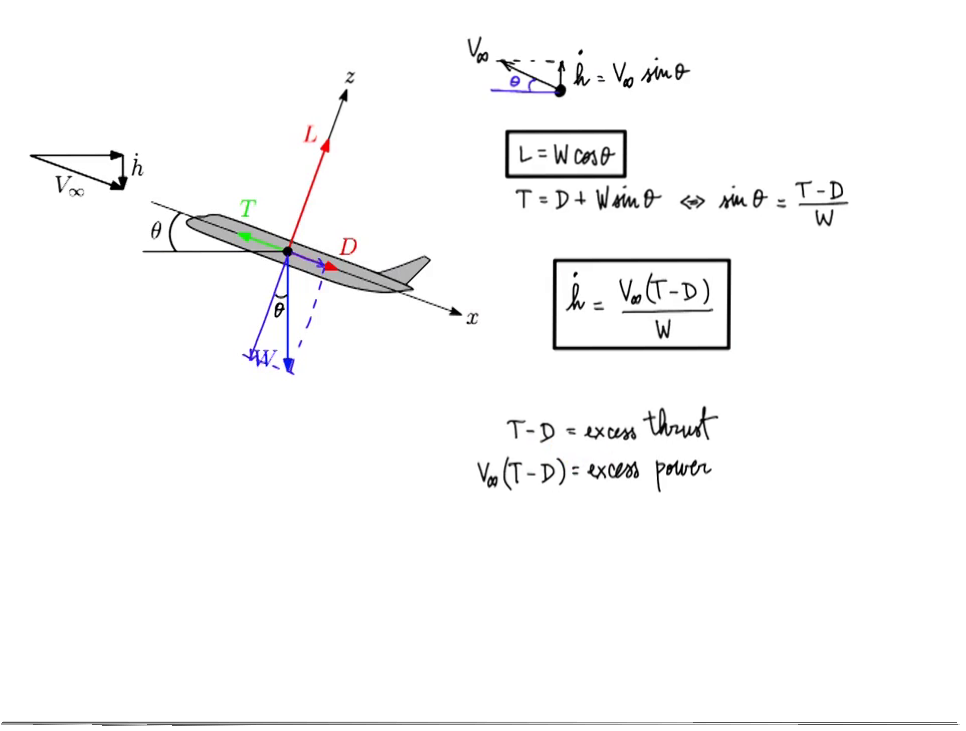 z
L
ḣ
V∞
T
θ
D
θ
x
W
V∞
θ
ḣ = V∞ sin θ
L = W cos θ
T = D + W sin θ ⇔ sin θ = (T - D)/W
ḣ = V∞(T - D)/W
T - D = excess thrust
V∞(T - D) = excess power